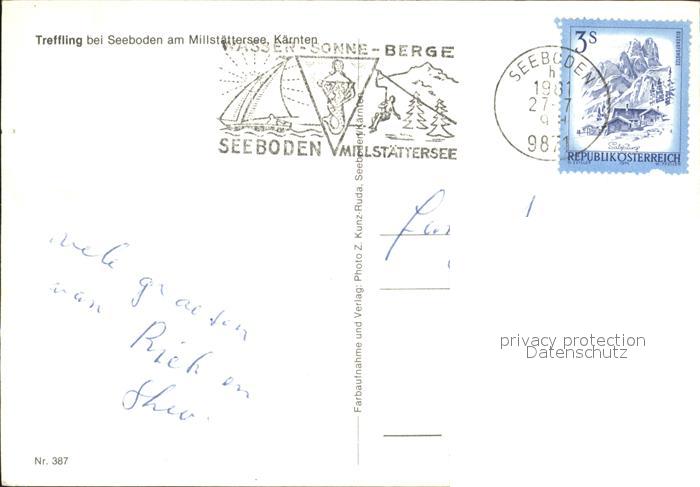 Treffling bei Seeboden am Millstättersee, Kärnten
WASSER-SONNE-BERGE
SEEBODEN MILLSTÄTTERSEE
SEEBODEN
h
1981
27.-7
9871
3S
REPUBLIK ÖSTERREICH
Farbaufnahme und Verlag: Photo Z. Kunz-Ruda, Seeboden/Kärnten
vele groeten
van
Riek en
privacy protection
Datenschutz
Nr. 387